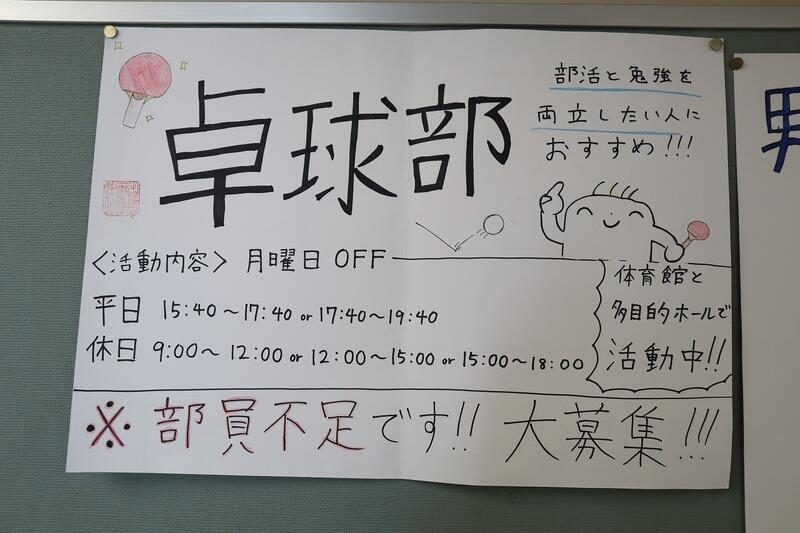 卓球部
部活と勉強を
両立したい人に
おすすめ!!!
<活動内容> 月曜日 OFF
平日 15:40～17:40 or 17:40～19:40
休日 9:00～12:00 or 12:00～15:00 or 15:00～18:00
体育館と
多目的ホールで
活動中!!
※部員不足です!! 大募集!!!
男